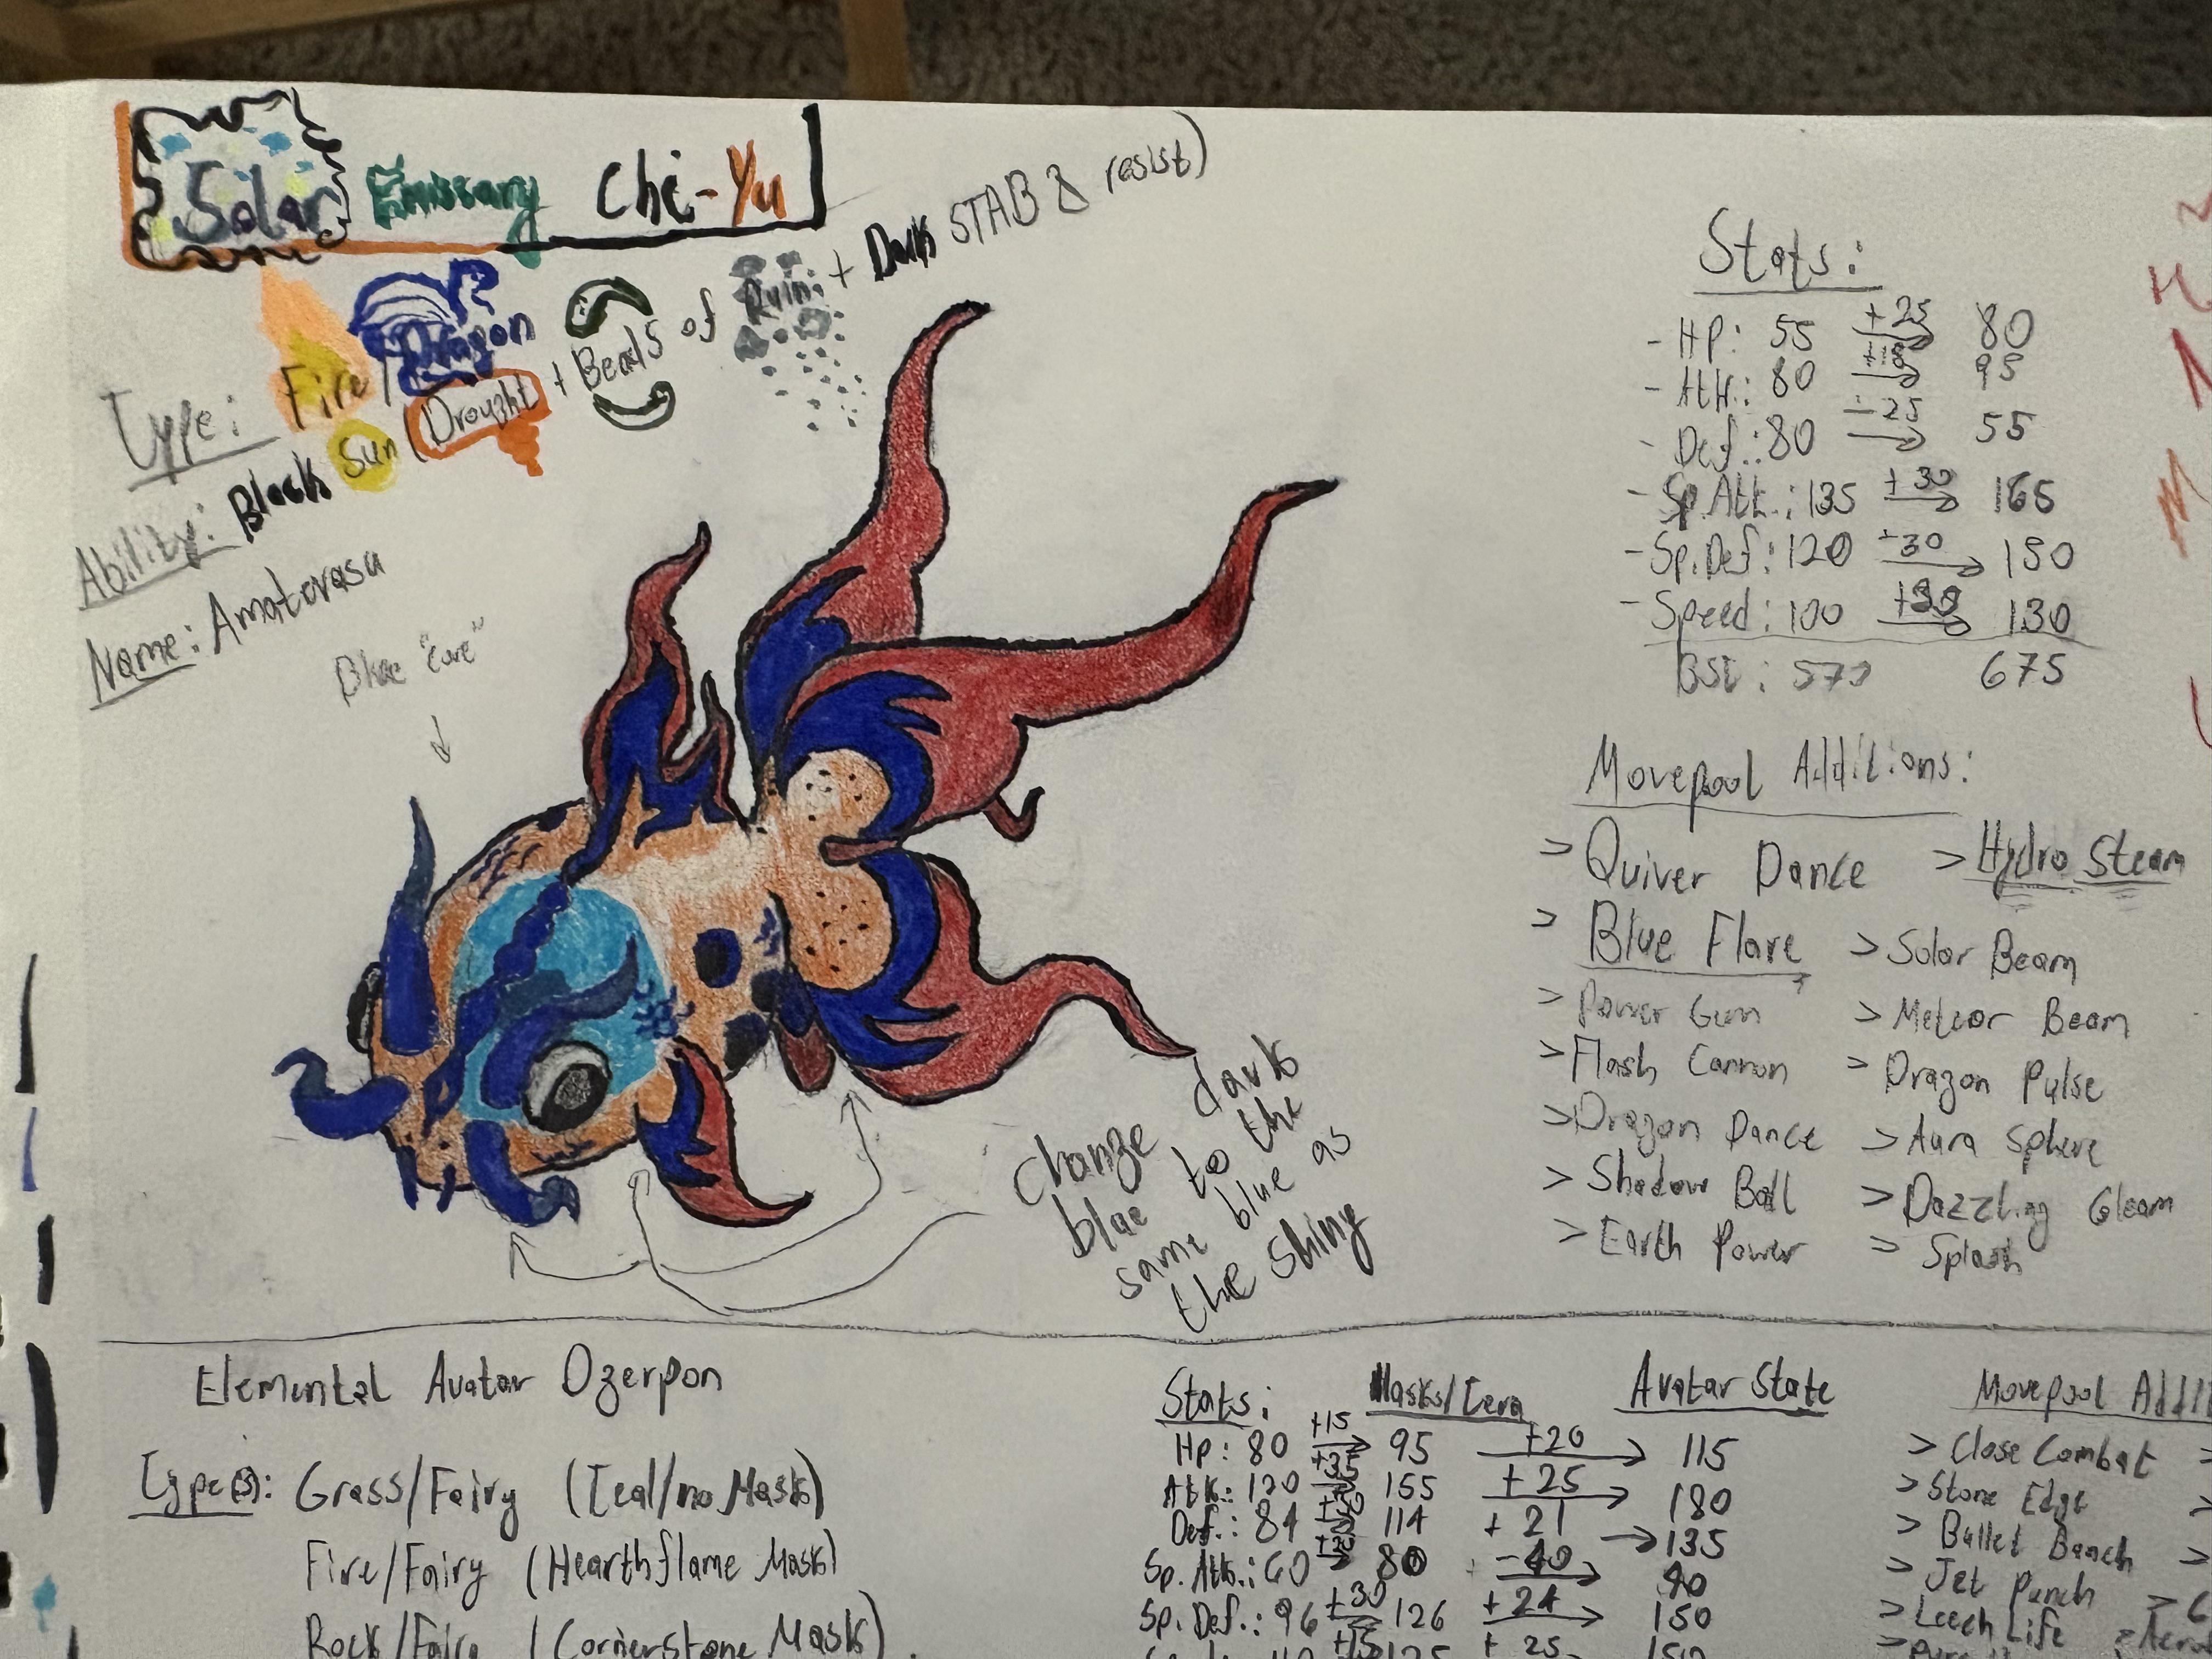 Solar Emissary Chi-Yu
Type: Fire/Dragon
Ability: Black Sun (Drought + Beads of Ruin + Dark STAB & resist)
Name: Amaterasu
Blue "core"
Change dark
blue to the
same blue as
the shiny
Stats:
- HP: 55 +25 80
- Attk.: 80 95
- Def.: 80 -25 55
- Sp.Att.: 135 +30 165
- Sp.Def: 120 +30 150
- Speed: 100 130
BST: 570 675
Movepool Additions:
> Quiver Dance > Hydro Steam
> Blue Flare > Solar Beam
> Power Gem > Meteor Beam
> Flash Cannon > Dragon Pulse
> Dragon Dance > Aura Sphere
> Shadow Ball > Dazzling Gleam
> Earth Power > Splash
Elemental Avatar Ogerpon
Type(s): Grass/Fairy (Teal/no Mask)
Fire/Fairy (Hearthflame Mask)
Rock/Fairy (Cornerstone Mask)
Stats: Masks/Tera Avatar State
Hp: 80 +15 95 +20 115
Attk.: 120 +35 155 +25 180
Def.: 84 114 +21 135
Sp. Attk.: 60 80 -40 40
Sp. Def.: 96 +30 126 +24 150
+15 125 + 25
Movepool
> Close Combat >
> Stone Edge
> Bullet Punch >
> Jet Punch >
> Leech Life